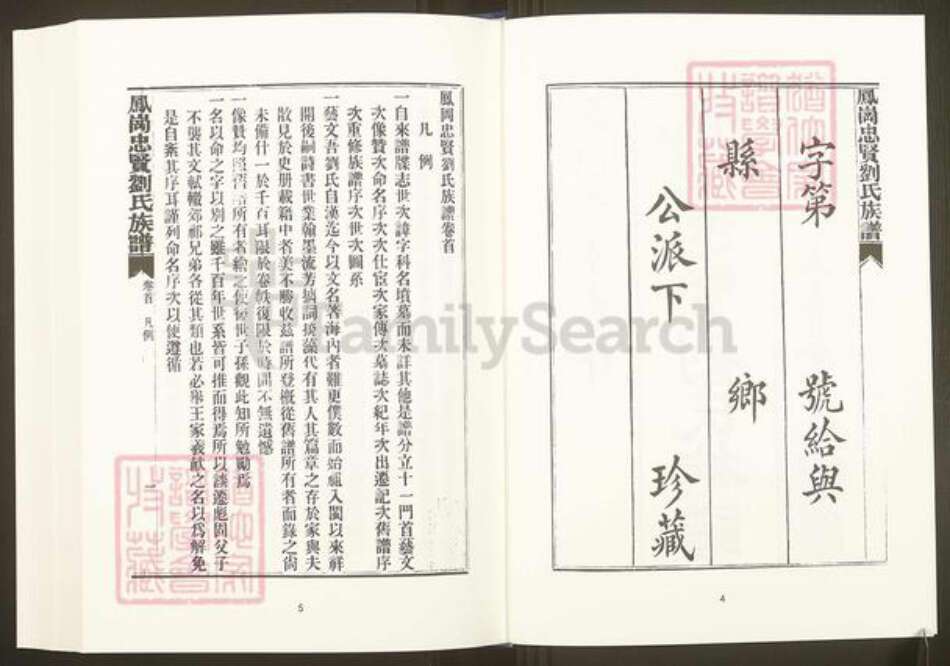 鳳崗忠賢劉氏族譜
字第　號給與
縣　鄉
公派下　珍藏
4
鳳岡忠賢劉氏族譜卷首
凡例
一自來譜牒志世次諱字科名墳墓而未詳其他是譜分立十一門首藝文
次像贊次命名序次次仕宦次家傳次墓誌次紀年次出遷記次舊譜序
次重修族譜序次世次圖系
一藝文吾劉氏自漢迄今以文名著海內者難更僕數而始祖入閩以來祥
開後嗣詩書世業翰墨流芳摛詞掞藻代有其人其篇章之存於家與夫
散見於史册載籍中者美不勝收茲譜所登概從舊譜所有者面錄之尙
未備什一於千百耳限於卷帙復限於時間不無遺憾
一像贊均照舊譜所有者繪之使後世子孫觀此知所勉勵焉
一名以命之字以別之雖千百年世系皆可推而得焉所以談遷彪固父子
不襲其文軾轍郊祁兄弟各從其類也若必舉王家羲獻之名以爲解免
是自紊其序耳謹列命名序次以使遵循
鳳崗忠賢劉氏族譜
卷首　凡例
一
5
FamilySearch